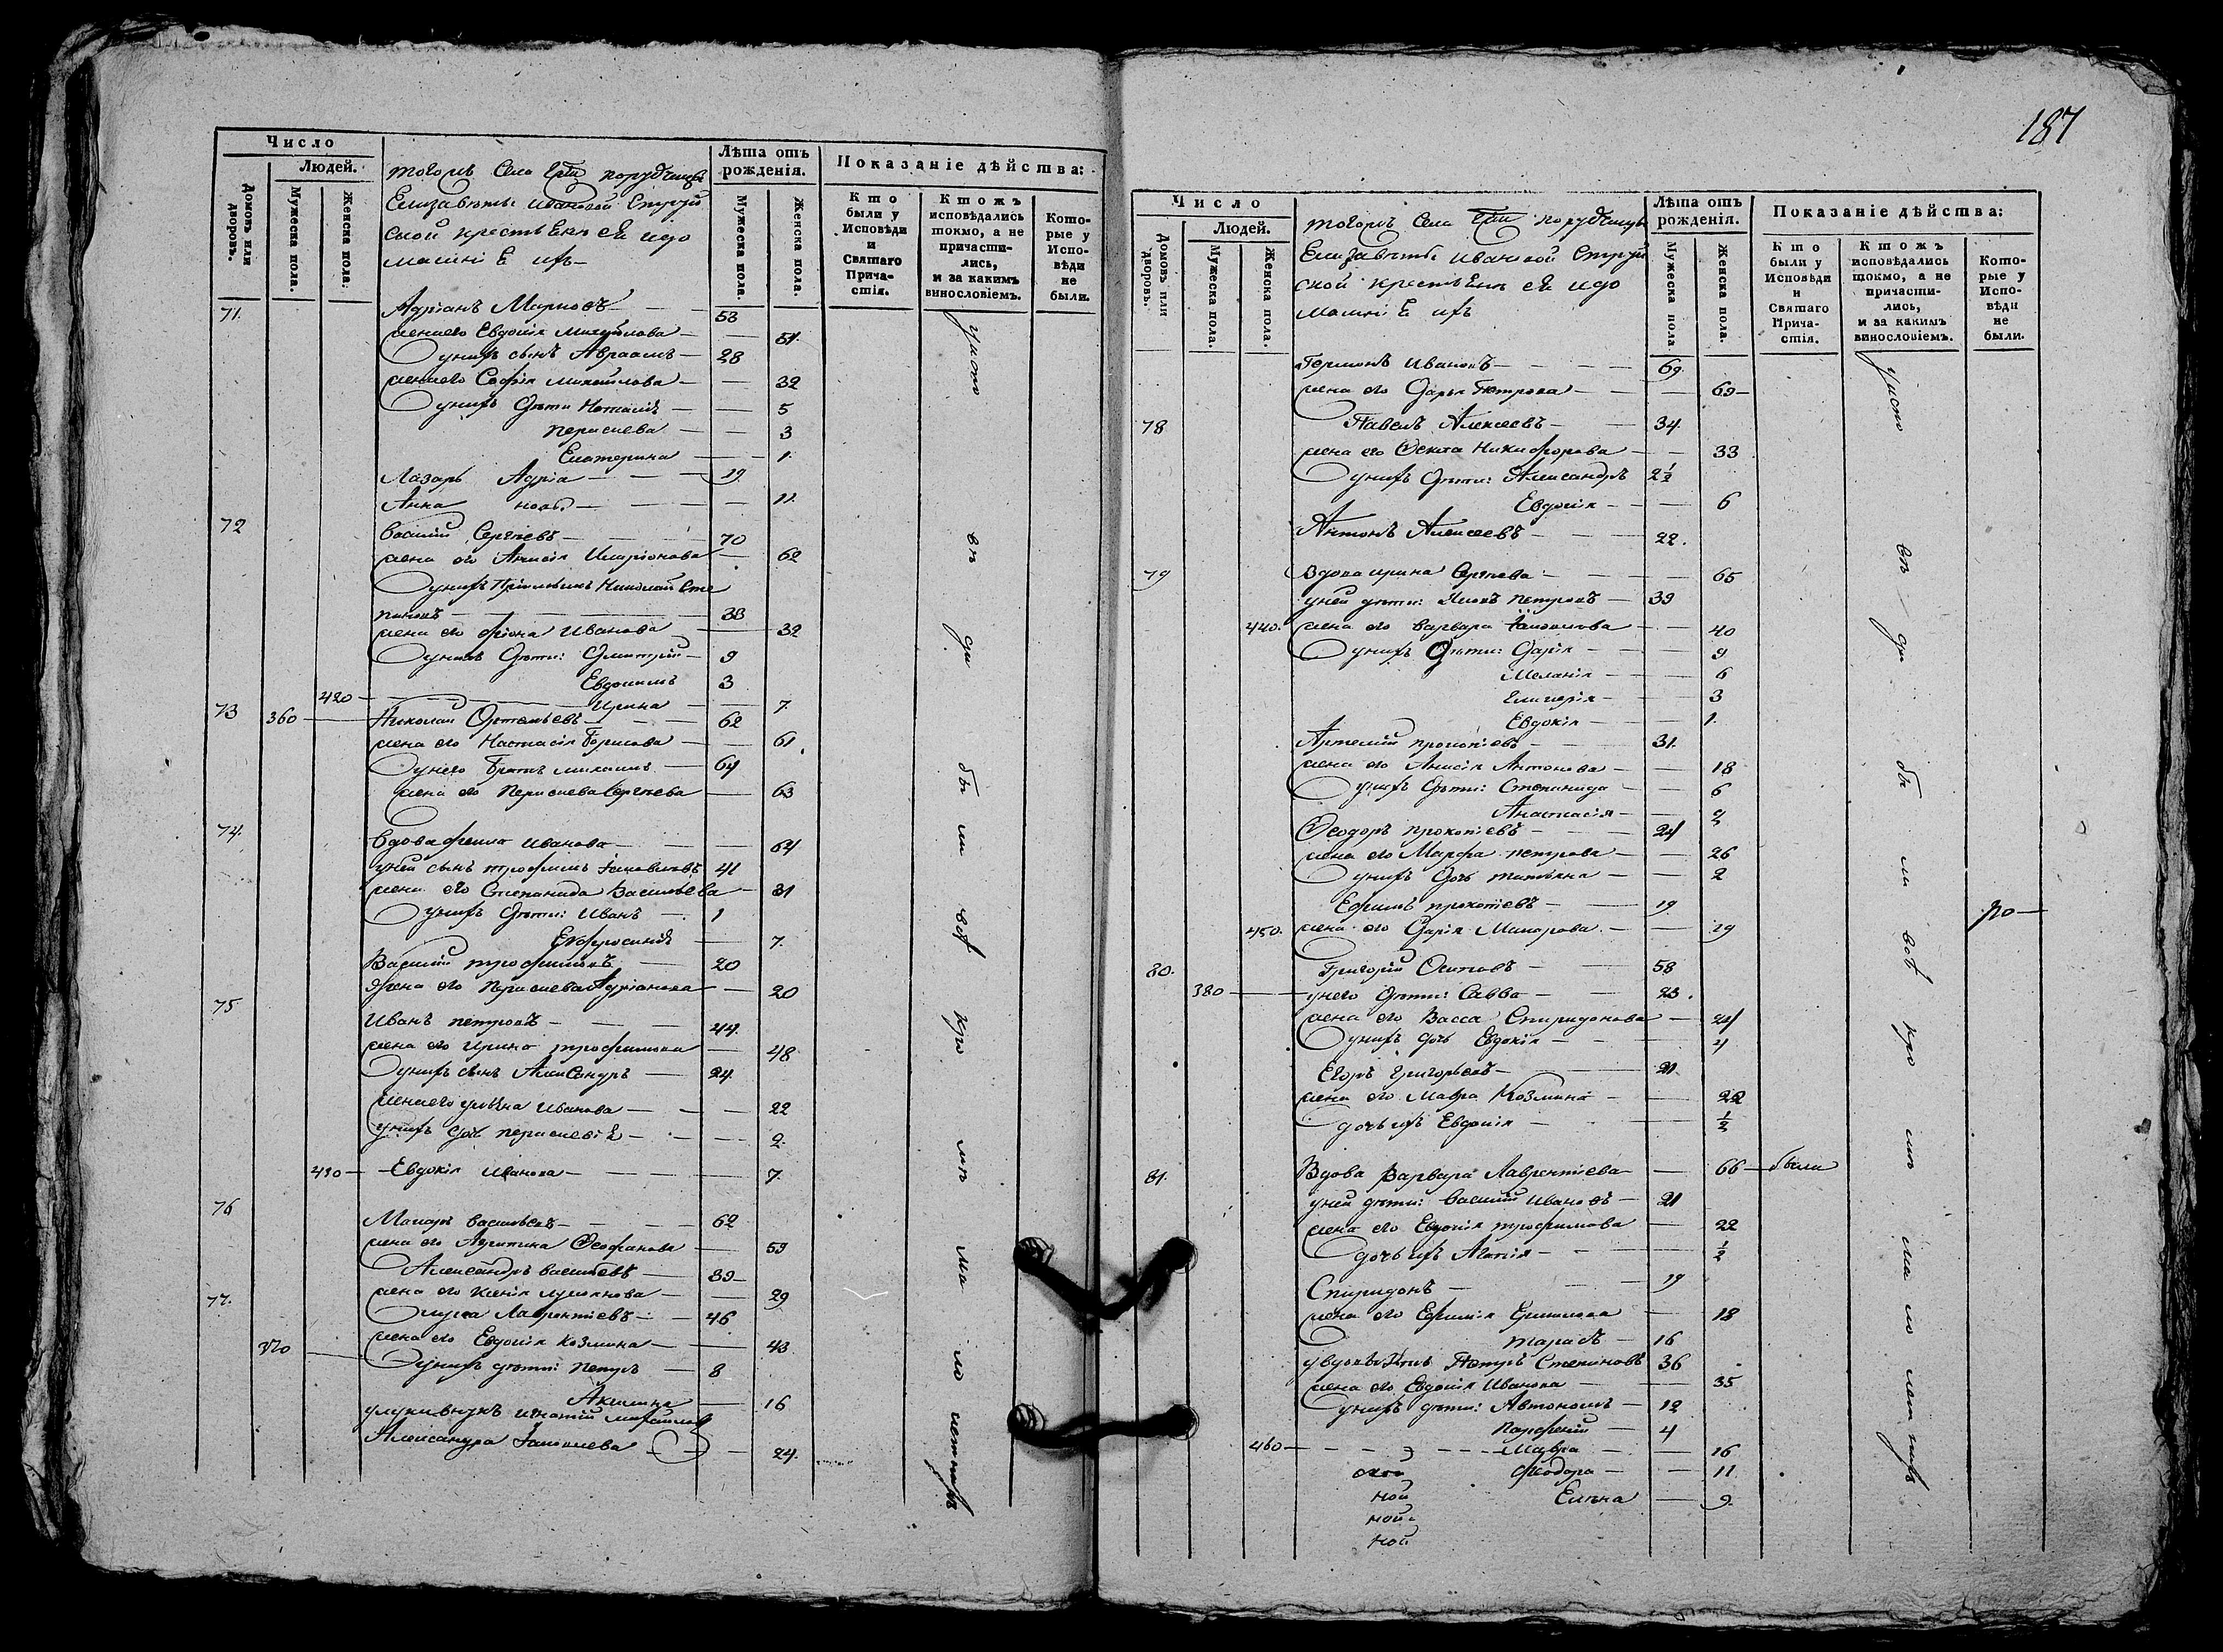 Число
Людей.
Домовъ или дворовъ.
Мужеска пола.
Женска пола.
тогожъ села порутчицы
Елизаветы Ивановой Струй
ской крестьяне ея и до
машніе ихъ
Лѣта отъ рожденія.
Мужеска пола.
Женска пола.
Показаніе дѣйства:
Кто были у Исповѣди и Святаго Прича-стія.
Ктожъ исповѣдались токмо, а не причасти-лись, и за какимъ винословіемъ.
Кото-рые у Испо-вѣди не были.
71. Адріанъ Марковъ 53
жена его Евдокія Михайлова 51.
у нихъ сынъ Авраамъ 28
жена его Софія Михайлова 32
у нихъ дѣти Наталія 5
Параскева 3
Екатерина 1.
Лазарь Адріа 19
Анна новы 11.
72 Василій Сергѣевъ 70
жена его Анисія Иларіонова 62
у нихъ Николай Сте
пановъ 33
жена его Иванова 32
у нихъ дѣти: Димитрій 9
Евдокимъ 3
420 Ирина 7.
73 360 Николай Артемьевъ 62
жена его Настасія Борисова 61.
у него братъ Михаилъ 64
жена его Параскева Сергѣева 63
74. Вдова Фекла Иванова 64
у ней сынъ Трофимъ Іаковлевъ 41
жена его Степанида Васильева 31
у нихъ дѣти: Иванъ 1
Евфросинія 7.
Василій Трофимовъ 20
жена его Параскева Адріанова 20
75 Иванъ Петровъ 44.
жена его Ирина Трофимова 48
у нихъ сынъ Александръ 24
жена его Ульяна Иванова 22
у нихъ дочь Параскевія 2.
430 Евдокія Иванова 7.
76 Макаръ Васильевъ 62
жена его Акулина Феофанова 59
Александръ Васильевъ 39
жена его Ксенія Лукіянова 29
77. Лука Лаврентіевъ 46
жена его Евдокія Козмина 43
370 у нихъ дѣти: Петръ 8
Акилина 16
у Луки внукъ Игнатій Михайловъ
Александра Іаковлева 24.
у исповѣди были всѣ кромѣ малолетнихъ
187
Число
Людей.
Домовъ или дворовъ.
Мужеска пола.
Женска пола.
тогожъ села порутчицы
Елизаветы Ивановой Струй
ской крестьяне ея и до
машніе ихъ
Лѣта отъ рожденія.
Мужеска пола.
Женска пола.
Показаніе дѣйства:
Кто были у Исповѣди и Святаго Прича-стія.
Ктожъ исповѣдались токмо, а не причасти-лись, и за какимъ винословіемъ.
Кото-рые у Испо-вѣди не были.
Германъ Ивановъ 69.
жена его Дарья Петрова 69
78 Павелъ Алексеевъ 34
жена его Фекла Никифорова 33
у нихъ дѣти: Александръ 2½
Евдокія 6
Антонъ Алексеевъ 22.
79 Вдова Ирина Сергѣева 65
у ней дѣти: Яковъ Петровъ 39
440. жена его Варвара Іаковлева 40
у нихъ дѣти: Дарія 9
Меланія 6
Гликерія 3
Евдокія 1.
Артемій Прокопіевъ 31.
жена его Анисія Антонова 18
у нихъ дѣти: Степанида 6
Анастасія 2
Феодоръ Прокопіевъ 24
жена его Марфа Петрова 26
у нихъ дочь Татіяна 2
Ефимъ Прокопіевъ 19
450. жена его Дарія Макарова 19
80. Григорій Осиповъ 58
380 у него дѣти: Савва 23.
жена его Васса Спиридонова 24
у нихъ дочь Евдокія 4
Егоръ Григорьевъ 21
жена его Мавра Козмина 22
дочь ихъ Евдокія ½
81. Вдова Варвара Лаврентіева 66 были
у ней дѣти: Василій Ивановъ 21
жена его Евдокія Трофимова 22
дочь ихъ Агапія ½
Спиридонъ 19
жена его Ефимія 18
Тарасъ 16
у вдовы Петръ Степановъ 36
жена его Евдокія Иванова 35
у нихъ дѣти: Автономъ 12
Парфеній 4
460 Мавра 16
Феодора 11
Елена 9.
ной
ной
ной
у исповѣди были всѣ кромѣ малолетнихъ